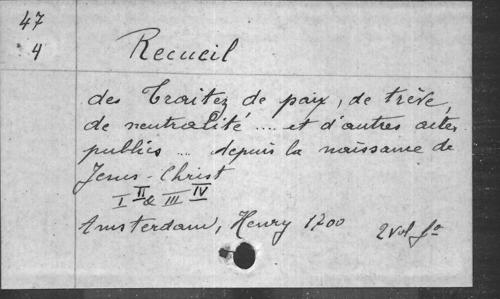 47
4
Recueil
des Traitez de paix, de trève,
de neutralité .... et d'autres actes
publics ... depuis la naissance de
Jesus-Christ
I II & III IV
Amsterdam, Henry 1700 2 vol fo